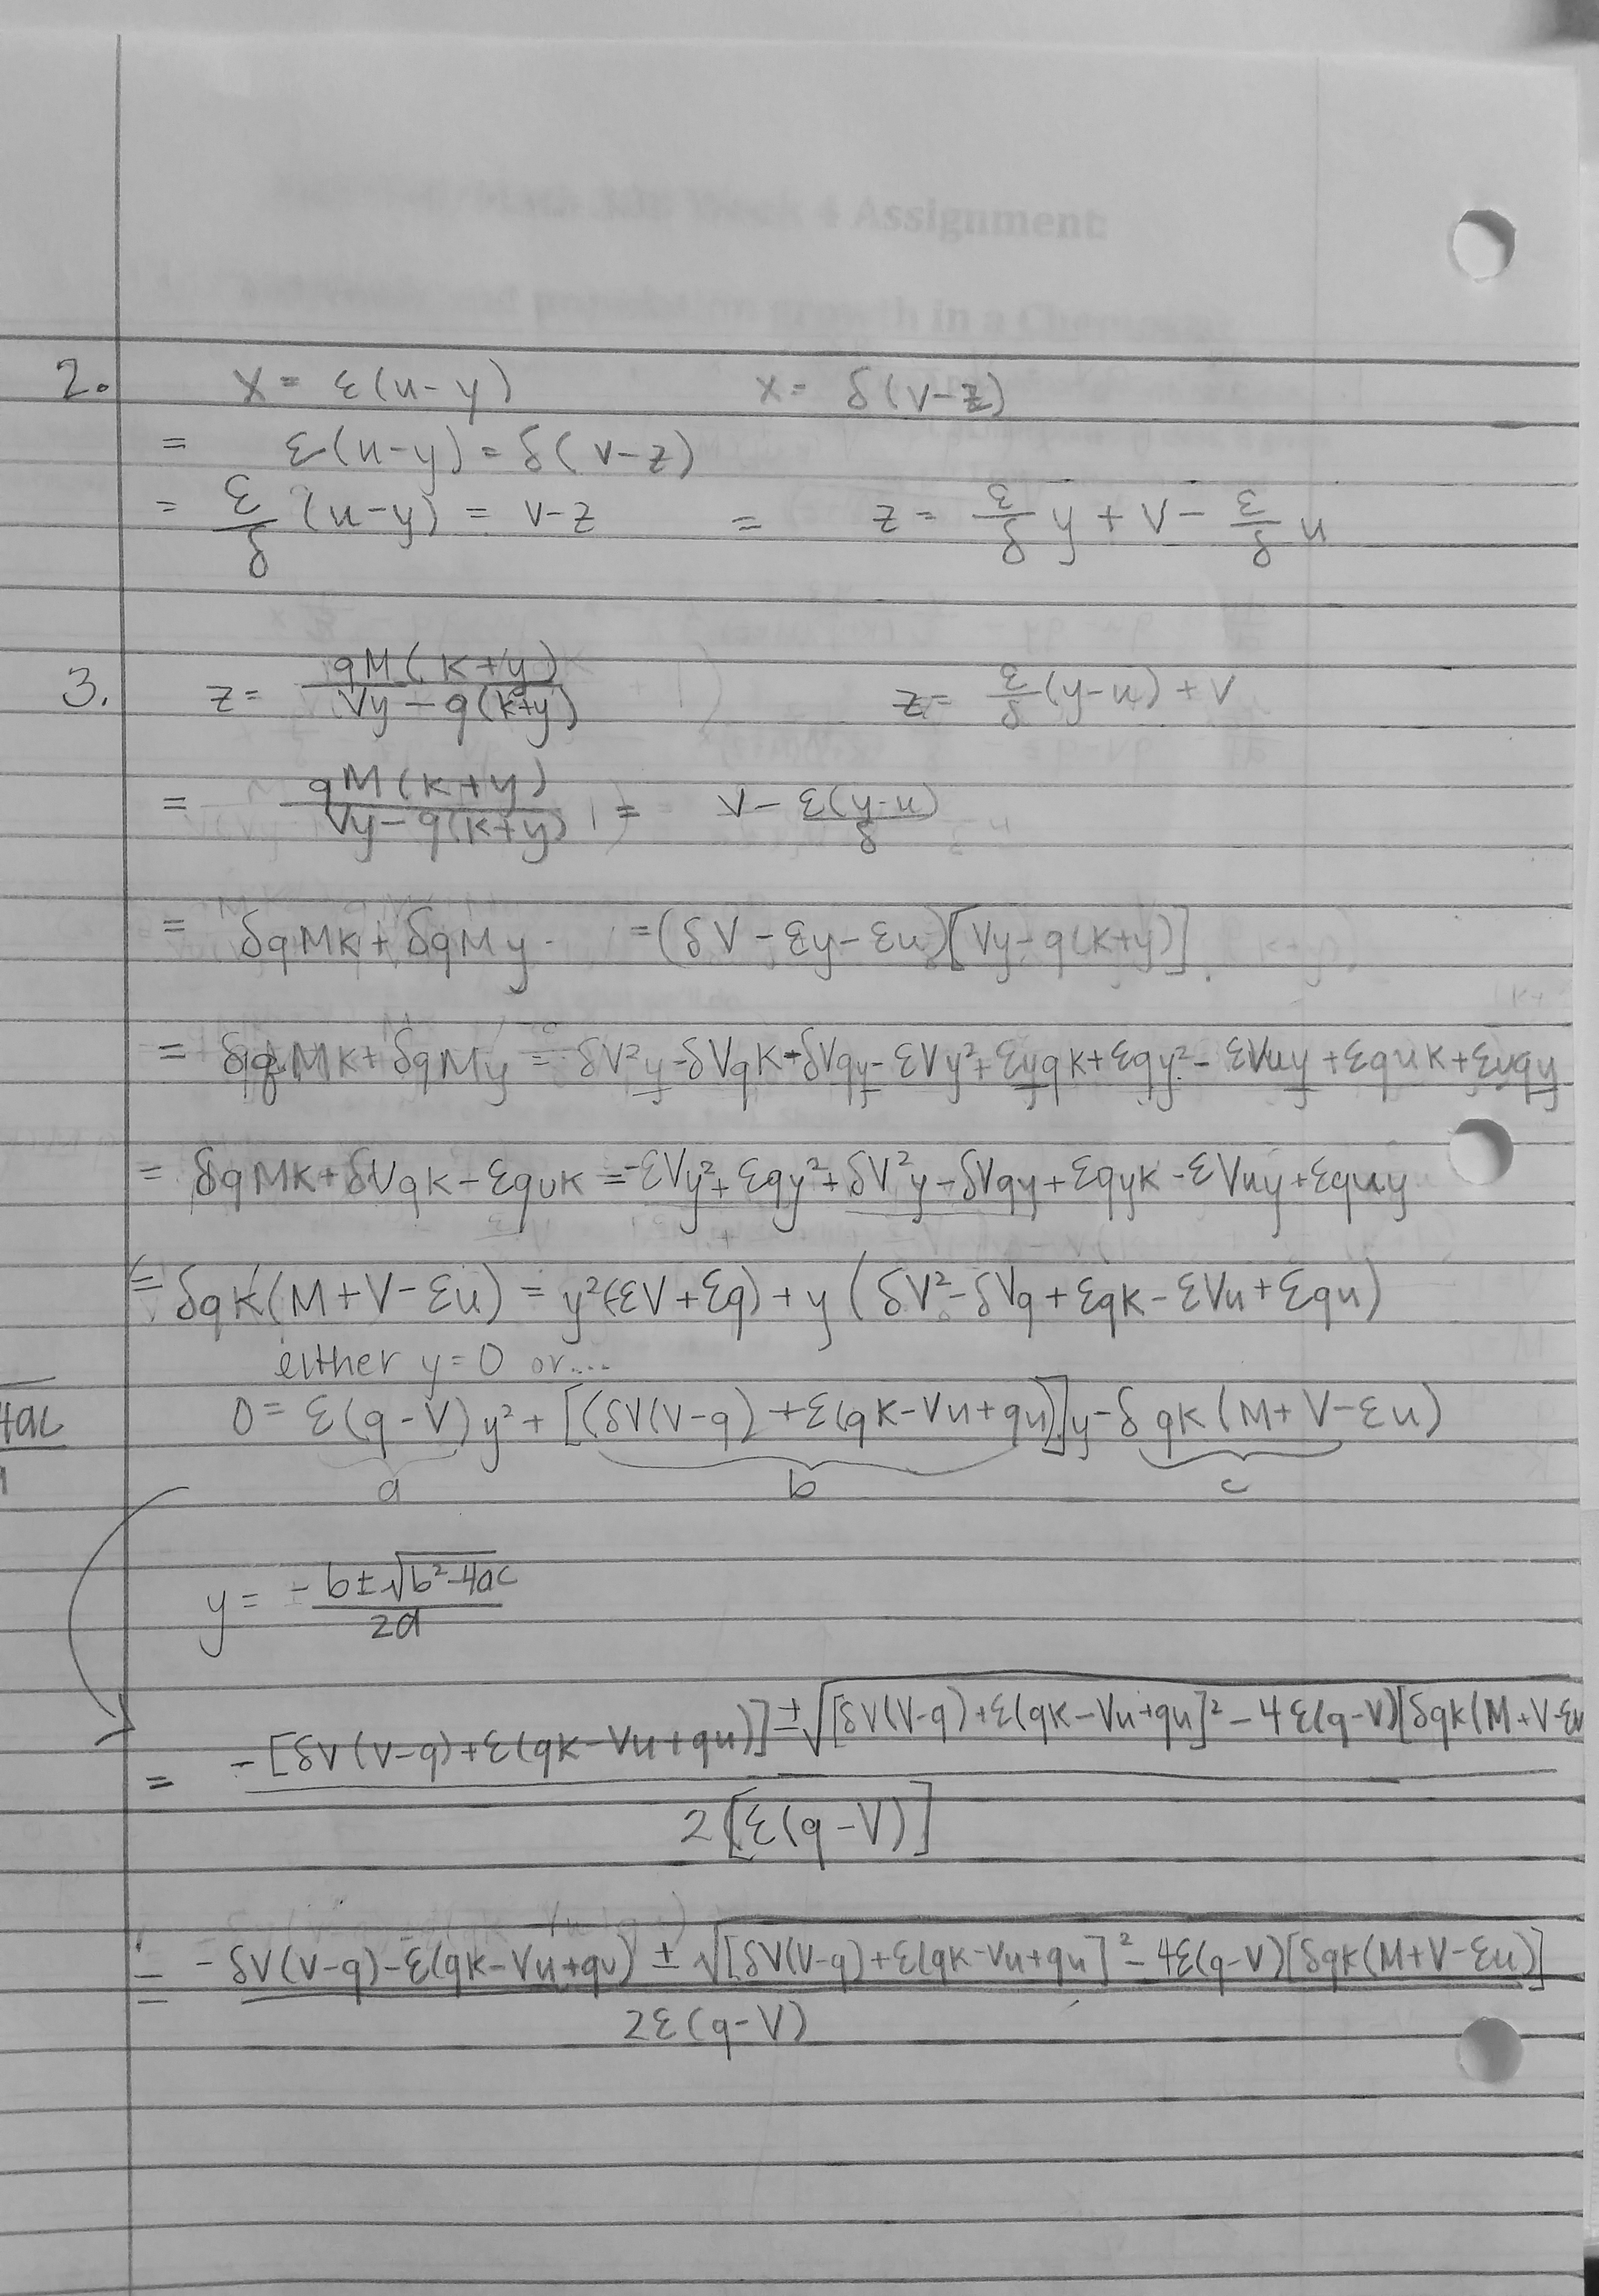 Week 4 Assignment
population growth in a
2. x = ε(u-y) x = δ(v-z)
= ε(u-y) = δ(v-z)
= ε/δ (u-y) = v-z = z = ε/δ y + v - ε/δ u
3. z = qM(k+y) / Vy - q(k+y) z = ε/δ (y-u) + v
= qM(k+y) / Vy - q(k+y) = v - ε(y-u)/δ
= δqMk + δqMy = (δV - εy - εu)[Vy - q(k+y)]
= δqMk + δqMy = δV²y - δVqk - δVqy - εVy² + εyqk + εqy² - εVuy + εquk + εuqy
= δqMk + δVqk - εquk = -εVy² + εqy² + δV²y - δVqy + εqyk - εVuy + εquy
= δqk(M+V-εu) = y²(-εV+εq) + y(δV² - δVq + εqk - εVu + εqu)
either y=0 or....
4ac
0 = ε(q-V)y² + [(δV(V-q) + ε(qk-Vu+qu)]y - δqk(M+V-εu)
a b c
y = -b±√b²-4ac / 2a
= -[δV(V-q)+ε(qk-Vu+qu)] ± √[δV(V-q)+ε(qk-Vu+qu]² - 4ε(q-V)[δqk(M+V-εu
2[ε(q-V)]
= -δV(V-q)-ε(qk-Vu+qu) ± √[δV(V-q)+ε(qk-Vu+qu]² - 4ε(q-V)[δqk(M+V-εu)]
2ε(q-V)